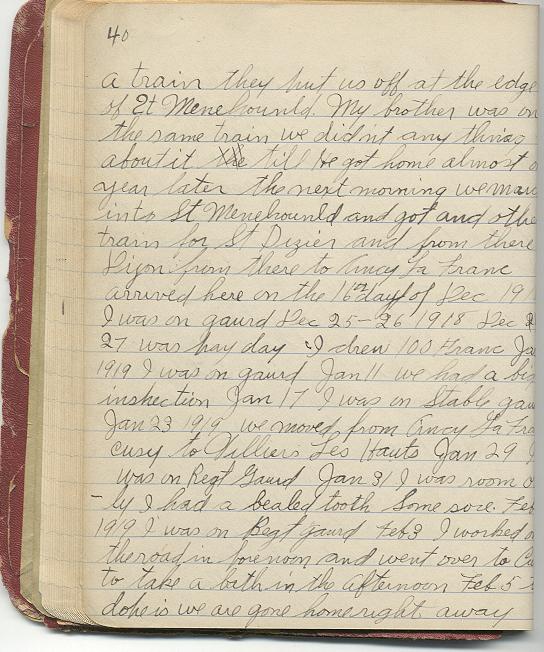 40
a train they put us off at the edge
of St Menehounld. My brother was on
the same train we didnt any thing
about it till He got home almost a
year later the next morning we marc
into St Menehounld and got and othe
train for St Dizier and from there
Dijon from there to Ancy La Franc
arrived here on the 16th day of Dec 191
I was on gaurd Dec 25-26 1918 Dec 2
27 was pay day I drew 100 Franc Ja
1919 I was on gaurd Jan 11 we had a big
inspection Jan 17 I was on Stable gau
Jan 23 1919 we moved from Ancy La Fra
cusy to Villiers Les Hauts Jan 29 I
was on Regt Gaurd Jan 31 I was room o
-ly I had a bealed tooth Some sore. Feb
1919 I was on Regt gaurd Feb 3 I worked o
the road in forenoon and went over to Cu
to take a bath in the afternoon Feb 5
dope is we are gone home right away